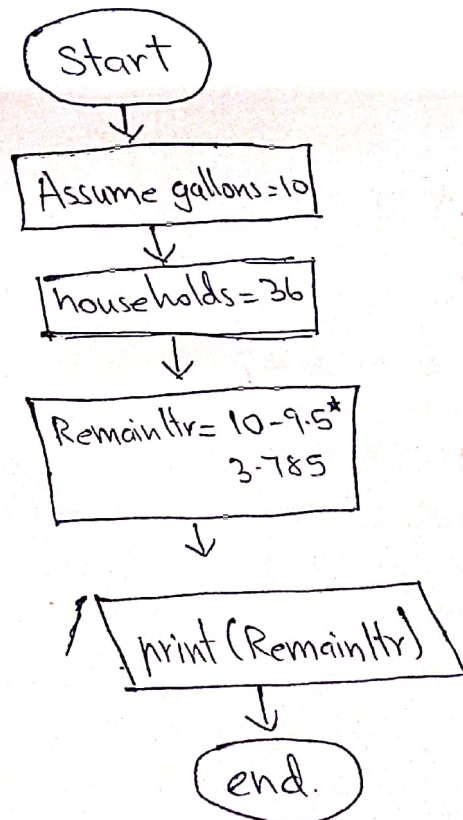 Start
Assume gallons=10
households=36
Remainltr= 10-9.5*
3.785
print(Remainltr)
end.